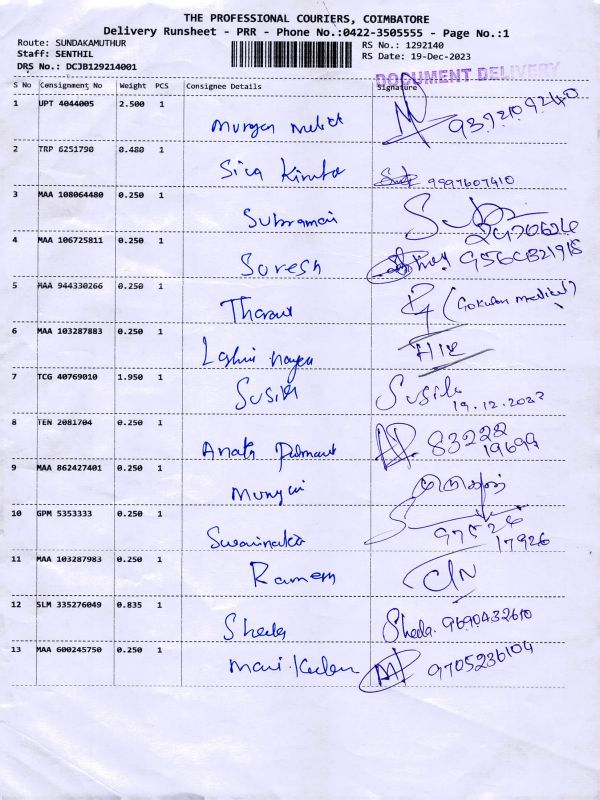 THE PROFESSIONAL COURIERS, COIMBATORE
Delivery Runsheet - PRR - Phone No.:0422-3505555 - Page No.:1
Route: SUNDAKAMUTHUR RS No.: 1292140
Staff: SENTHIL RS Date: 19-Dec-2023
DRS No.: DCJB129214001
DOCUMENT DELIVERY
S No Consignment No Weight PCS Consignee Details Signature
1 UPT 4044005 2.500 1
Murugan 9392109240
2 TRP 6251790 0.480 1
Siva 9997607410
3 MAA 108064480 0.250 1
Subramani
4 MAA 106725811 0.250 1
Suresh
5 MAA 944330266 0.250 1
(Gokulan medical)
6 MAA 103287883 0.250 1
7 TCG 40769010 1.950 1
Susila
19.12.2023
8 TEN 2081704 0.250 1
83222
19699
9 MAA 862427401 0.250 1
10 GPM 5353333 0.250 1
97526
17926
11 MAA 103287983 0.250 1
Ramesh
12 SLM 335276049 0.835 1
Sheda Sheda. 9690432610
13 MAA 600245750 0.250 1
9705236104